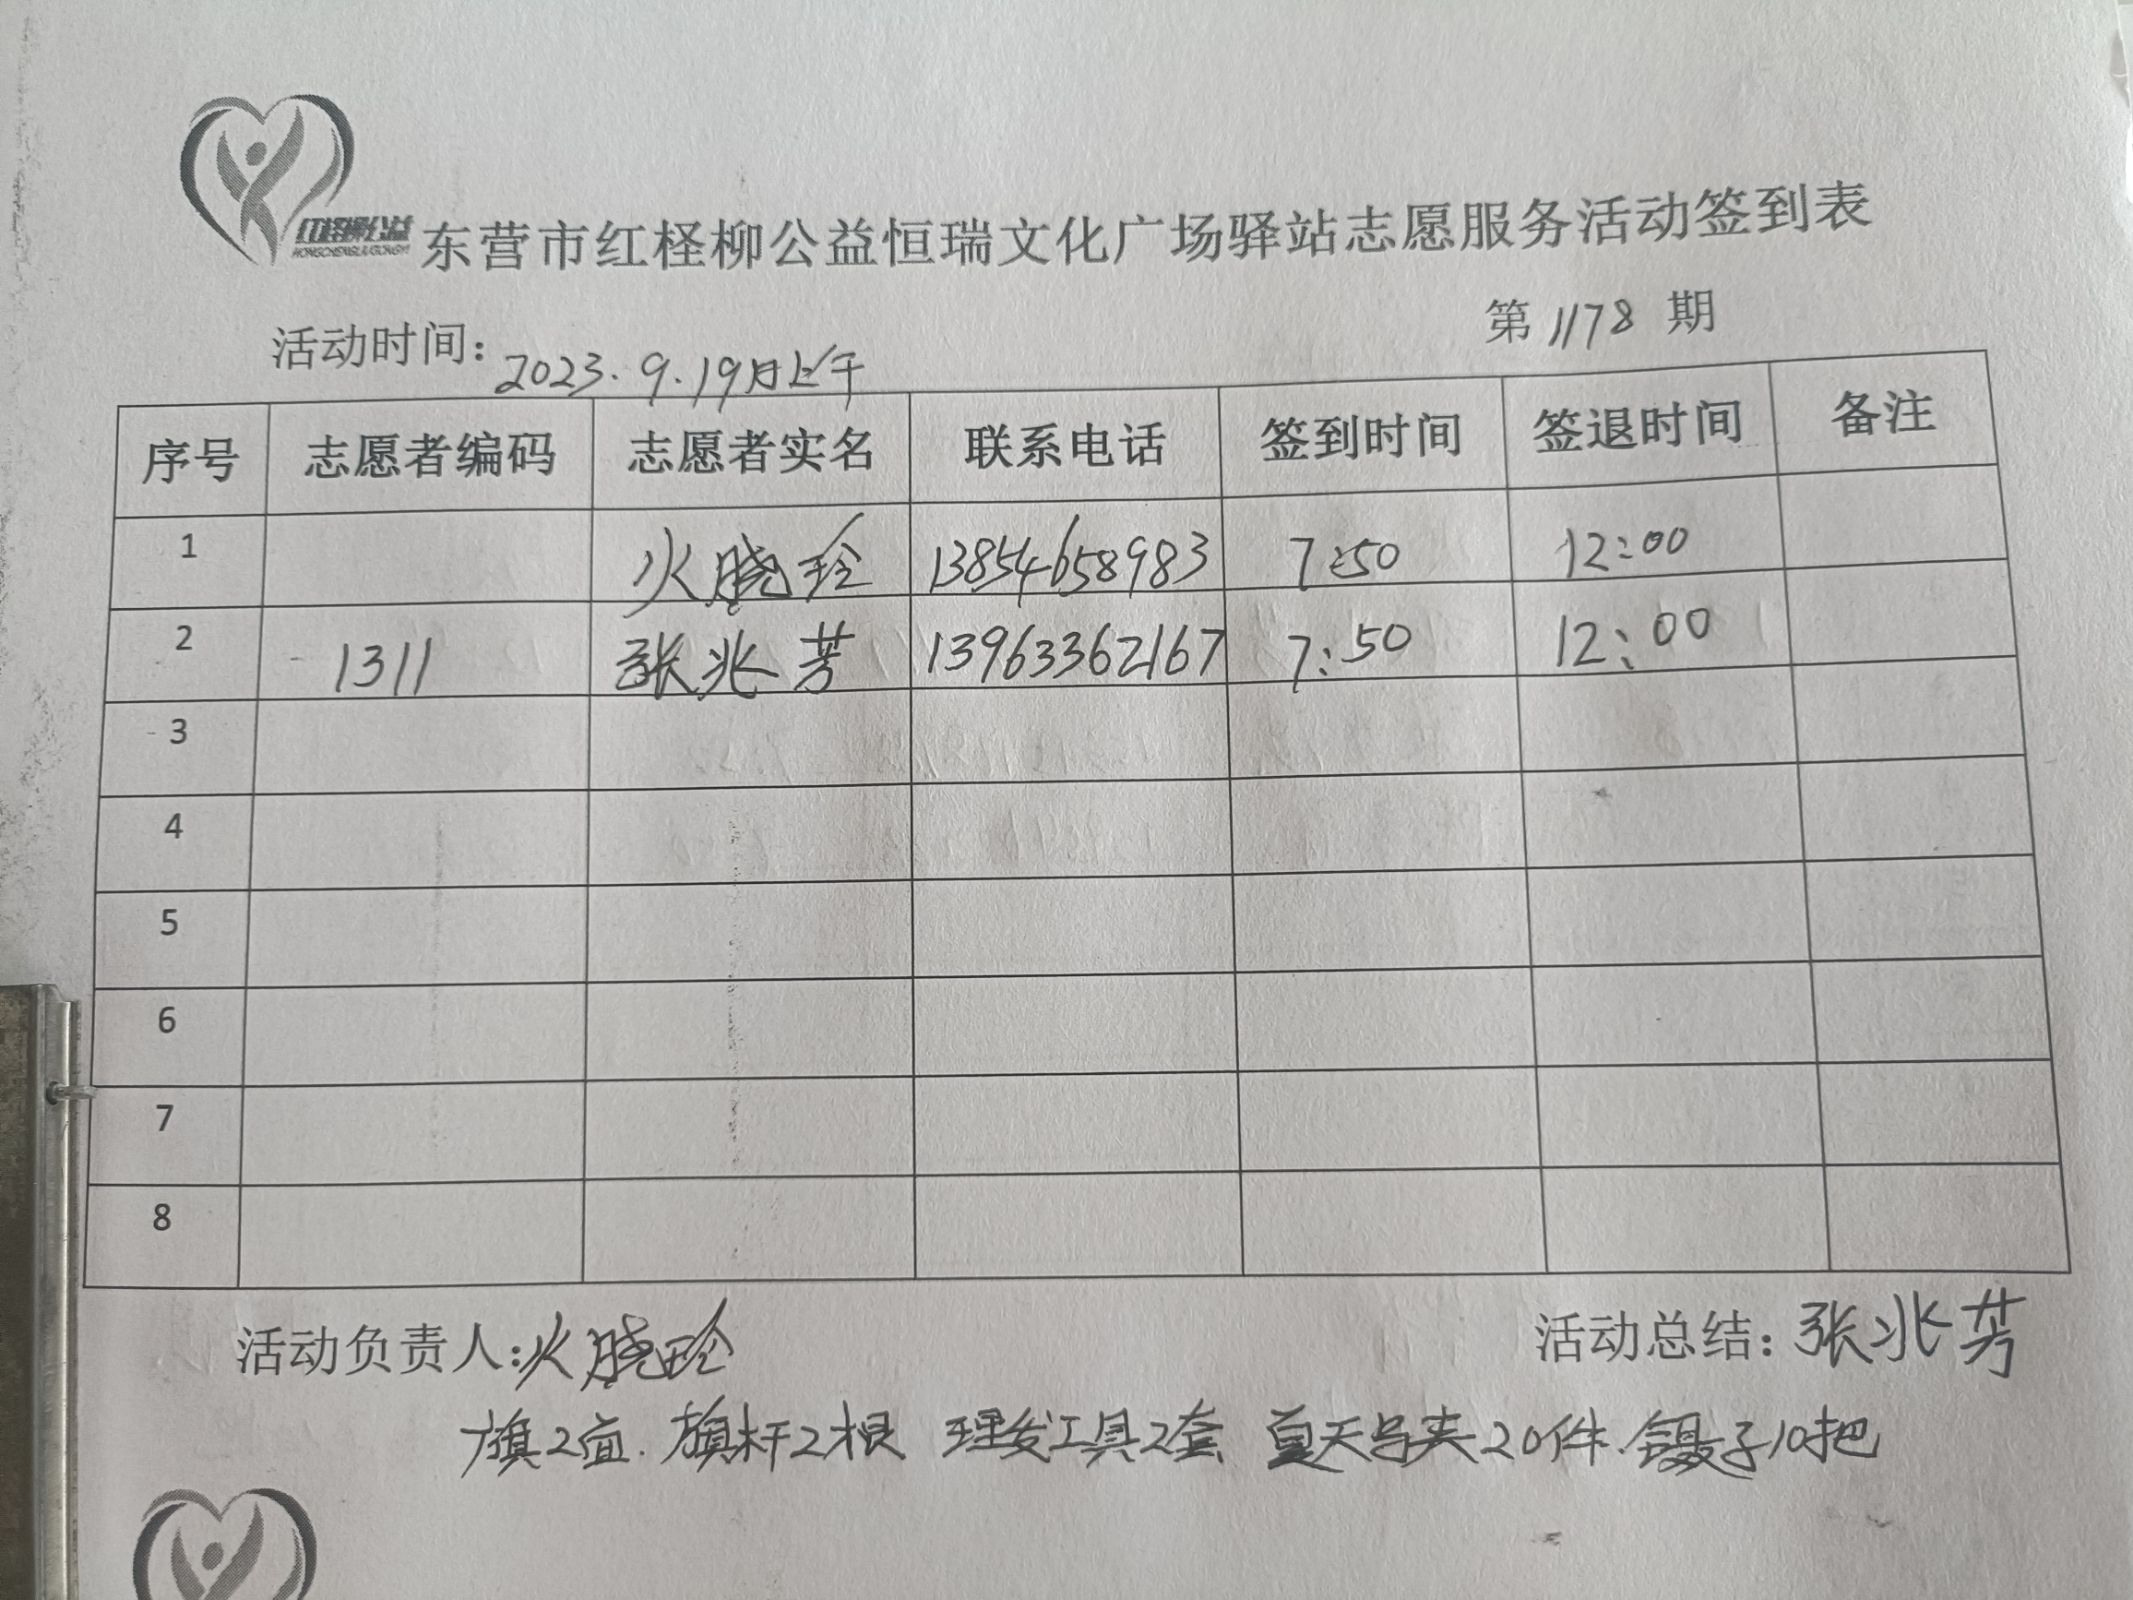 红柽柳公益
HONGCHENGLIUGONGYI
东营市红柽柳公益恒瑞文化广场驿站志愿服务活动签到表
活动时间：2023.9.19日上午 第1178期
序号 志愿者编码 志愿者实名 联系电话 签到时间 签退时间 备注
1 火晓玲 13854658983 7:50 12:00
2 1311 张兆芳 13963362167 7:50 12:00
3
4
5
6
7
8
活动负责人：火晓玲 活动总结：张兆芳
旗2面.旗杆2根 理发工具2套 夏天马夹20件.镊子10把